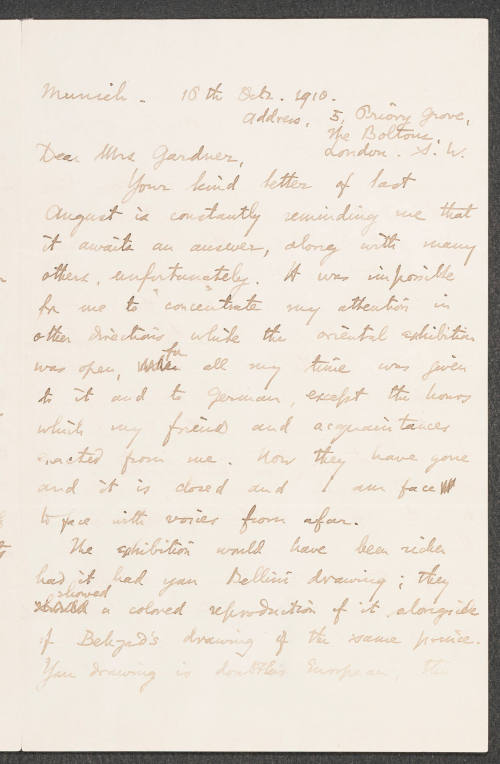 Munich. 18th Oct. 1910.
Address, 5, Priory Grove,
The Boltons,
London. S. W.
Dear Mrs Gardner,
Your kind letter of last
August is constantly reminding me that
it awaits an answer, along with many
others, unfortunately. It was impossible
for me to concentrate my attention in
other directions while the oriental exhibition
was open, for all my time was given
to it and to German, except the hours
which my friends and acquaintances
exacted from me. Now they have gone
and it is closed and I am face
to face with voices from afar.
The exhibition would have been richer
had it had your Bellini drawing; they
showed a colored reproduction of it alongside
of Behzad's drawing of the same prince.
Your drawing is doubtless European, the